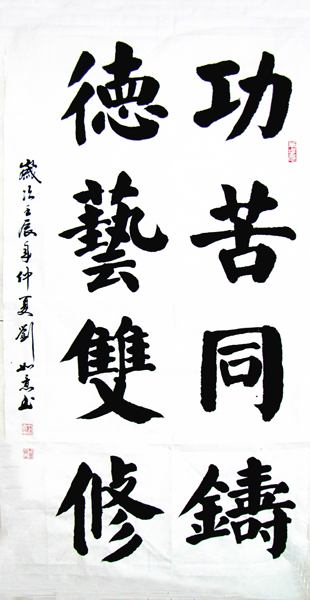 功苦同鑄
德藝雙修
歲次壬辰年仲夏劉如意書